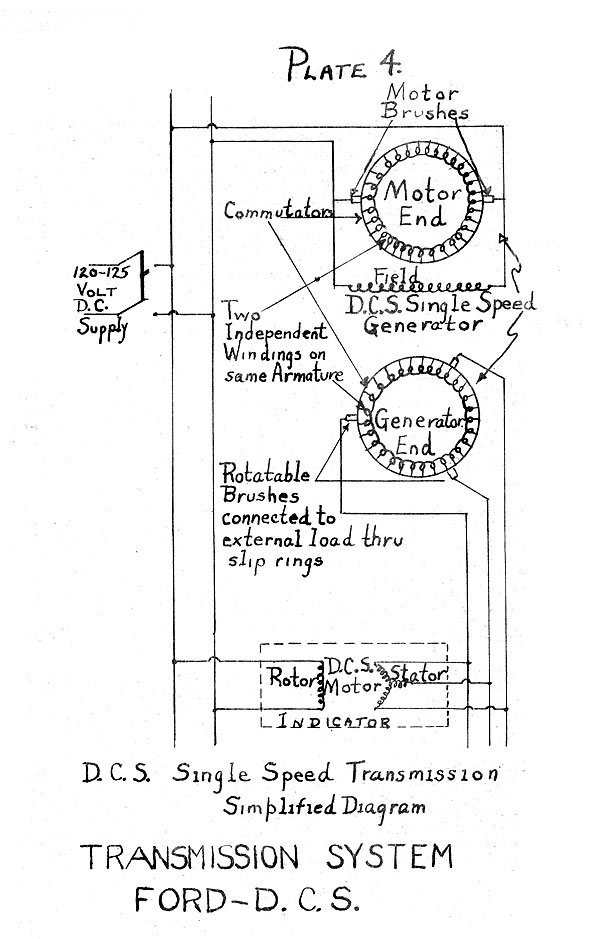 PLATE 4.
Motor
Brushes
Motor
End
Commutators
120-125
VOLT
D.C.
Supply
Field
D.C.S. Single Speed
Generator
Two
Independent
Windings on
same Armature
Generator
End
Rotatable
Brushes
connected to
external load thru
slip rings
Rotor
D.C.S.
Motor
Stator
INDICATOR
D.C.S. Single Speed Transmission
Simplified Diagram
TRANSMISSION SYSTEM
FORD-D.C.S.